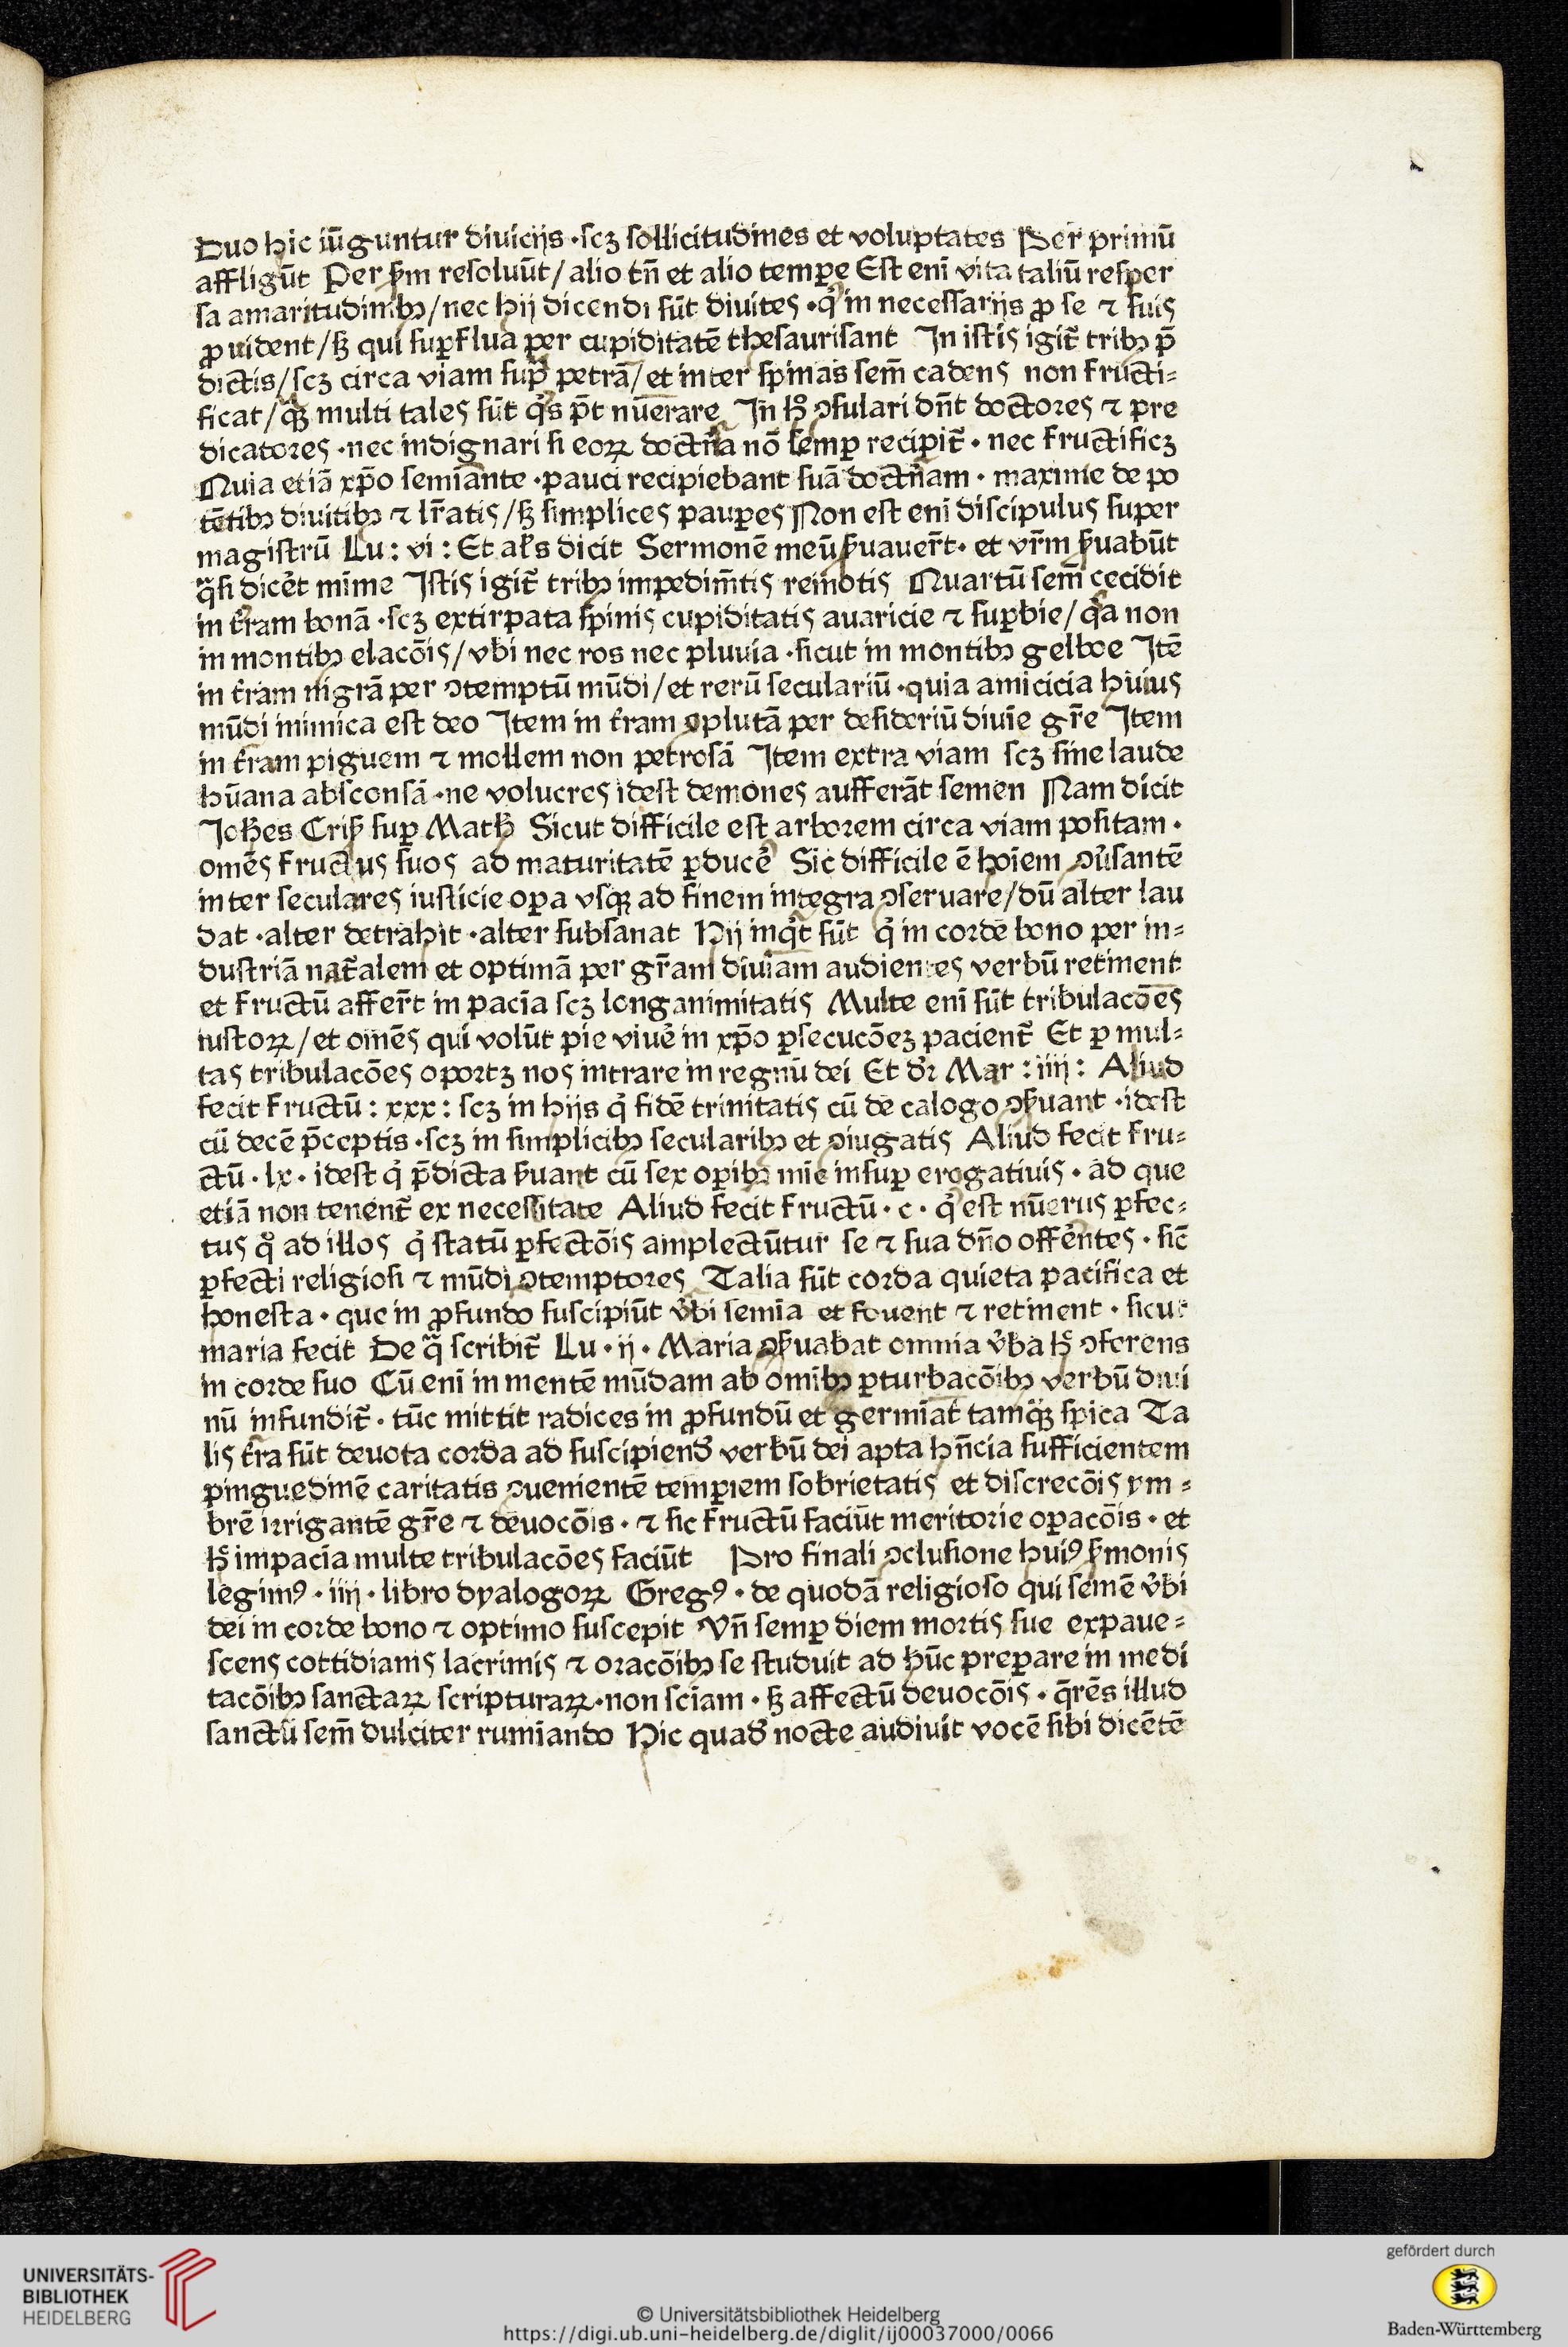 Duo hic iūguntur diuicijs ·ſcꝫ ſollicitudines et voluptates Per primū
affligūt Per ẜm reſoluūt/ alio tn̄ et alio temꝑe Eſt enī vita taliū reſper
ſa amaritudinibꝫ/ nec hij dicendi ſūt diuites ·q̇ in neceſſarijs ꝓ ſe ⁊ ſuis
ꝓuident/ ſꝫ qui ſuꝑflua per cupiditatē theſauriſant In iſtis igit̄ tribꝫ p̄
dictis/ ſcꝫ circa viam ſup̄ petrā/ et inter ſpinas ſem̄ cadens non fructi⸗
ficat/ q̄ꝫ multi tales ſūt q̇s p̄t nūerare In hͦ ꝯſulari dn̄t doctores ⁊ pre
dicatores ·nec indignari ſi eoꝝ doctn̄a nō ſemꝑ recipit̄ · nec fructificꝫ
Quia etiā xp̄o ſemiānte ·pauci recipiebant ſuā doctn̄am · maxime de po
tētibꝫ diuitibꝫ ⁊ lr̄atis/ ſꝫ ſimplices pauꝑes Non eſt enī diſcipulus ſuper
magiſtrū Lu : vi : Et al̄s dicit Sermonē meū ẜuauer̄t· et vr̄m ẜuabūt
q̄ſi dicēt mīme Iſtis igit̄ tribꝫ impedim̄tis remotis Quartū ſem̄ cecidit
in t̄ram bonā ·ſcꝫ extirpata ſpinis cupiditatis auaricie ⁊ ſuꝑbie/ q̇a non
in montibꝫ elacōis/ vbi nec ros nec pluuia ·ſicut in montibꝫ gelboe Itē
in t̄ram nigrā per ꝯtemptū mūdi/ et rerū ſeculariū ·quia amicicia huius
mūdi inimica eſt deo Item in t̄ram ꝯplutā per deſideriū diuīe gr̄e Item
in t̄ram piguem ⁊ mollem non petroſā Item extra viam ſcꝫ ſine laude
hūana abſconſā ·ne volucres ideſt demones aufferāt ſemen Nam dicit
Joh̄es Criẜ ſuꝑ Math̄ Sicut difficile eſt arborem circa viam poſitam ·
omēs fructus ſuos ad maturitatē ꝑducē Sic difficile ē hoīem ꝯuſ̄antē
inter ſeculares iuſticie oꝑa vſqꝫ ad finem integra ꝯſeruare/ dū alter lau
dat ·alter detrahit ·alter ſubſanat Hij inq̇t ſūt q̇ in corde bono per in⸗
duſtriā nat̄alem et optimā per gr̄am diuīam audientes verbū retinent
et fructū affer̄t in pacīa ſcꝫ longanimitatis Multe enī ſūt tribulacōes
iuſtoꝝ/ et omēs qui volūt pie viuē in xp̄o ꝑſecucōeꝫ pacient̄ Et ꝑ mul⸗
tas tribulacōes oportꝫ nos intrare in regnū dei Et dr̄ Mar : iiij : Aliud
fecit fructū : xxx : ſcꝫ in hijs q̇ fidē trinitatis cū de calogo ꝯẜuant ·ideſt
cū decē p̄ceptis ·ſcꝫ in ſimplicibꝫ ſecularibꝫ et ꝯiugatis Aliud fecit fru⸗
ctū · lx · ideſt q̇ p̄dicta ẜuant cū ſex oꝑibꝫ mīe inſuꝑ erogatiuis · ad que
etiā non tenent̄ ex neceſſitate Aliud fecit fructū · c · q̇ eſt nūerus ꝑfec⸗
tus qͦ ad illos q̇ ſtatū ꝑfectōis amplectūtur ſe ⁊ ſua dn̄o offēntes · ſic̄
ꝑfecti religioſi ⁊ mūdi ꝯtemptores Talia ſūt corda quieta pacifica et
honeſta · que in ꝓfundo ſuſcipiūt v̄bi ſemīa et fouent ⁊ retinent · ſicut
maria fecit De q̄ ſcribit̄ Lu · ij · Maria ꝯẜuabat omnia v̄ba h̄ ꝯferens
in corde ſuo Cū enī in mentē mūdam ab omībꝫ ꝑturbacōibꝫ verbū diui
nū infundit̄ · tūc mittit radices in ꝓfundū et germīat tamq̄ꝫ ſpica Ta
lis t̄ra ſūt deuota corda ad ſuſcipiend̄ verbū dei apta hn̄cia ſufficientem
pinguedinē caritatis ꝯuenientē temꝑiem ſobrietatis et diſcrecōis ym⸗
brē irrigantē gr̄e ⁊ deuocōis · ⁊ ſic fructū faciūt meritorie oꝑacōis · et
h̄ impacīa multe tribulacōes faciūt Pro finali ꝯcluſione huiꝰ ẜmonis
legimꝰ · iiij · libro dyalogoꝝ Gregꝰ · de quodā religioſo qui ſemē v̄bi
dei in corde bono ⁊ optimo ſuſcepit Vn̄ ſemꝑ diem mortis ſue expaue⸗
ſcens cottidianis lacrimis ⁊ oracōibꝫ ſe ſtuduit ad hūc preꝑare in medi
tacōibꝫ ſanctaꝝ ſcripturaꝝ ·non ſciam · ſꝫ affectū deuocōis · q̄rēs illud
ſanctū ſem̄ dulciter rumīando Hic quad̄ nocte audiuit vocē ſibi dicētē
UNIVERSITÄTS-
BIBLIOTHEK
HEIDELBERG
© Universitätsbibliothek Heidelberg
https://digi.ub.uni-heidelberg.de/diglit/ij00037000/0066
gefördert durch
Baden-Württemberg